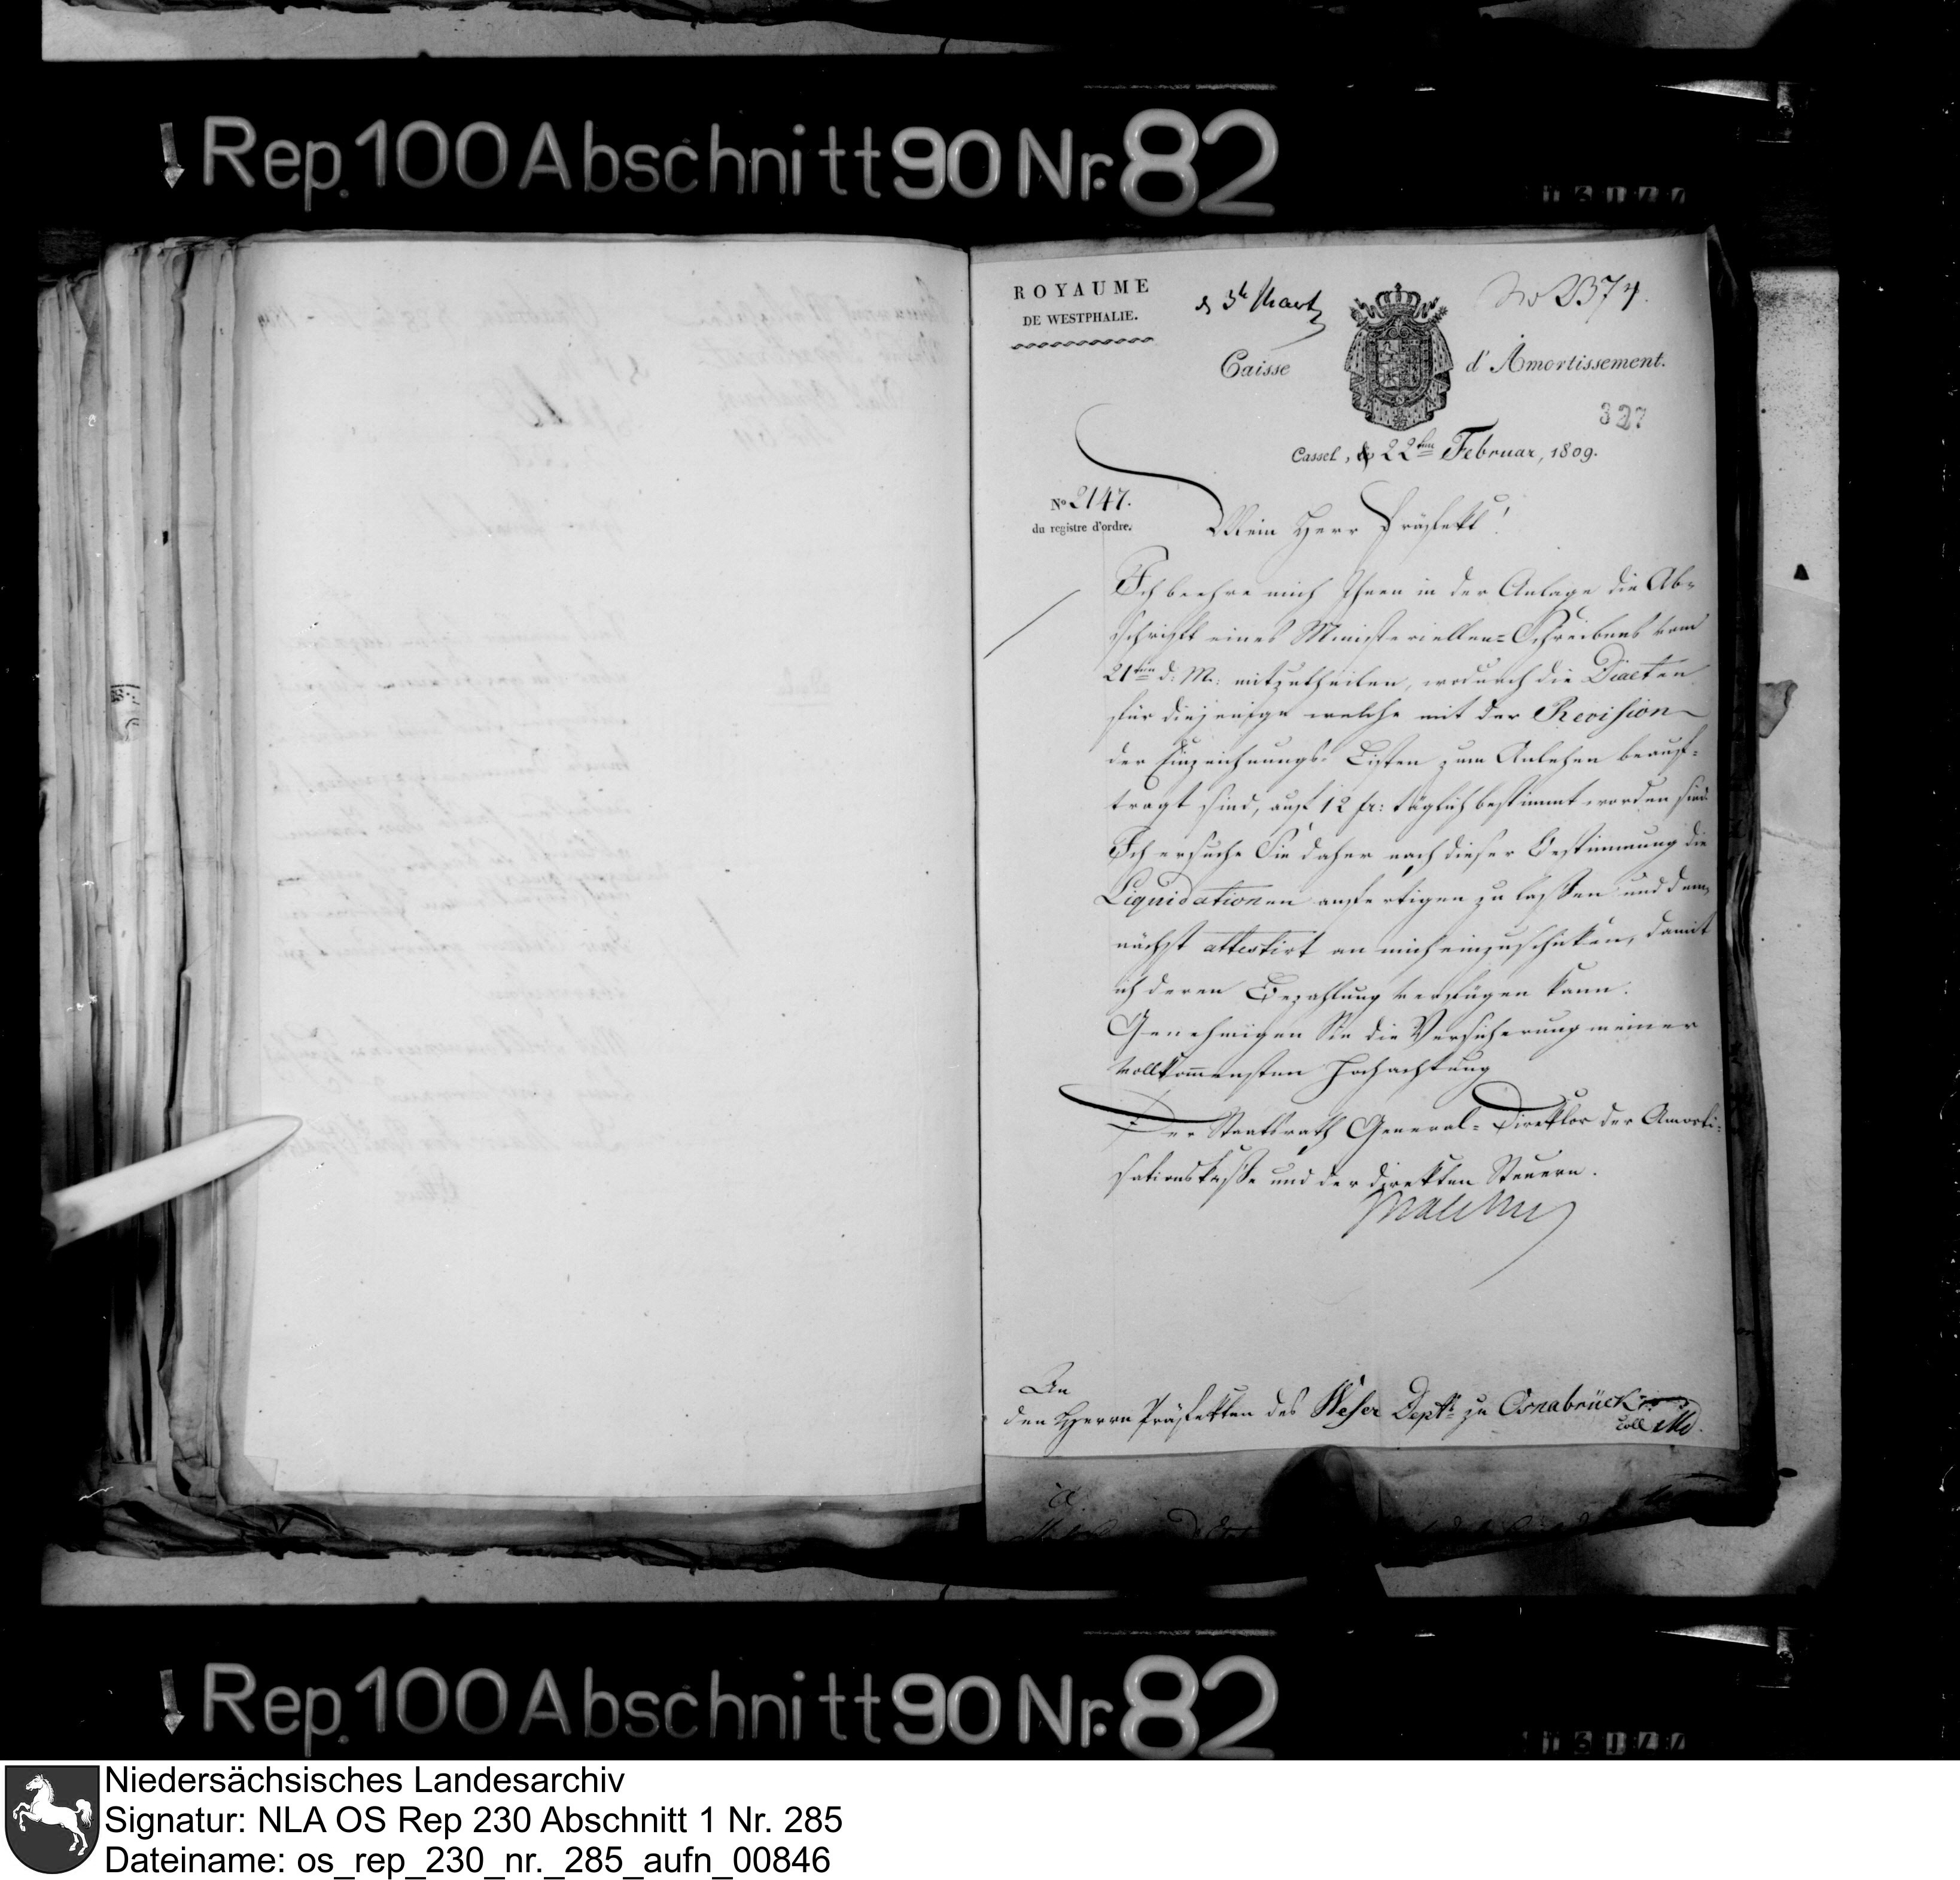 Rep. 100 Abschnitt 90 Nr. 82
ROYAUME
DE WESTPHALIE.
3t Martz
No 2374.
Caisse d'Amortissement.
327
Cassel, 22ten Februar, 1809.
No 2147.
du registre d'ordre.
Mein Herr Präfekt!
Ich beehre mich Ihnen in der Anlage die Ab-
schrift eines Ministeriellen-Schreibens vom
21ten d: M: mitzutheilen, wodurch die Diaeten
für diejenige welche mit der Revision
der Einzeichnungs-Listen zum Anlehen beauf-
tragt sind, auf 12 fr: täglich bestimmt worden sind.
Ich ersuche Sie daher nach dieser Bestimmung die
Liquidationen ausfertigen zu lassen und dem-
nächst attestirt an mich einzuschicken, damit
ich deren Bezahlung verfügen kann.
Genehmigen Sie die Versicherung meiner
vollkommensten Hochachtung
Der Staatsrath General-Direktor der Amorti-
sationskasse und der direkten Steuern.
Malchus
An
den Herrn Präfekten des Weser Dept: zu Osnabrück
coll
Rep. 100 Abschnitt 90 Nr. 82
Niedersächsisches Landesarchiv
Signatur: NLA OS Rep 230 Abschnitt 1 Nr. 285
Dateiname: os_rep_230_nr._285_aufn_00846